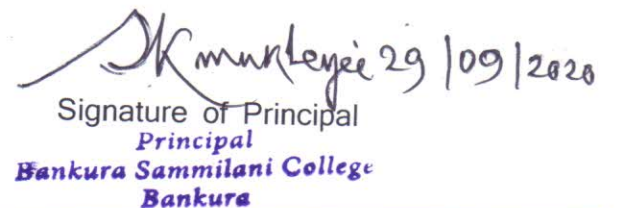 SKmukherjee 29/09/2020
Signature of Principal
Principal
Bankura Sammilani College
Bankura